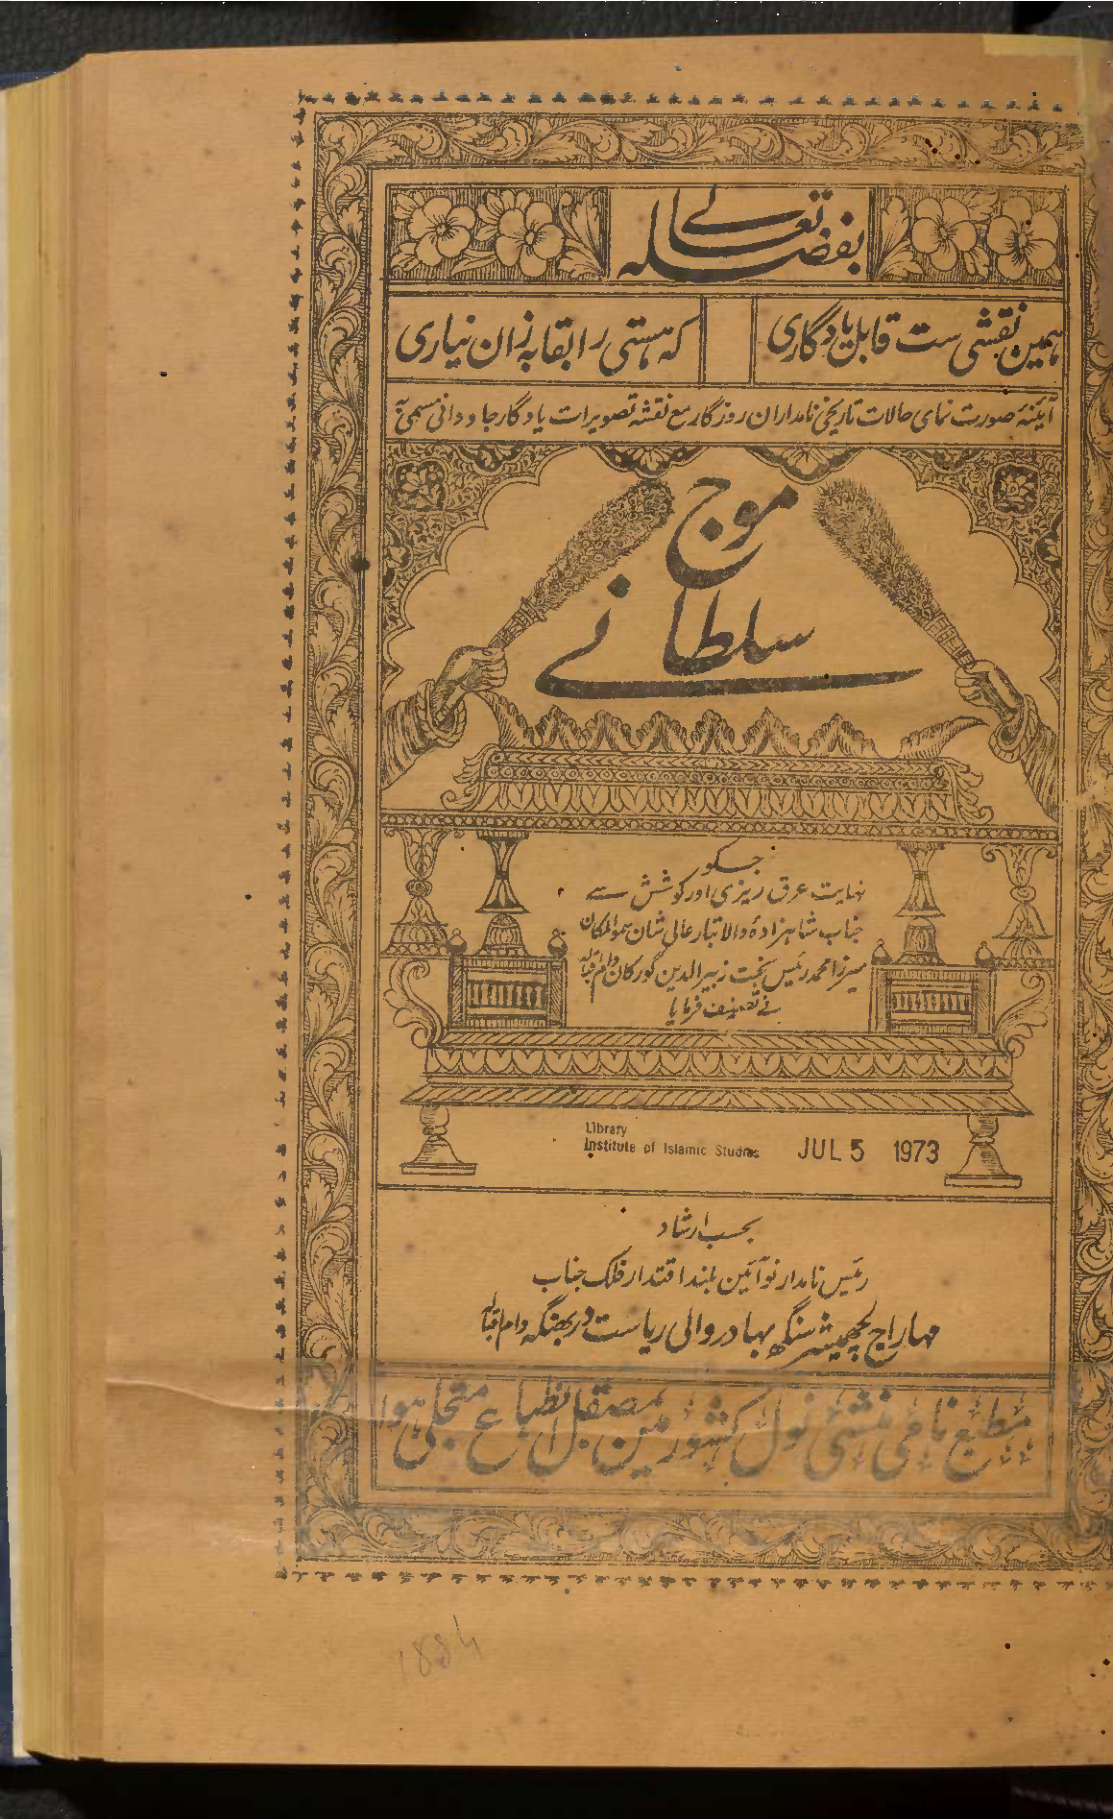 بفضلہ تعالے
ہمین نقشی ست قابل یادگاری
کہ ہستی را بقا بہ زان نیاری
آئینۂ صورت نمای حالات تاریخی نامداران روزگار مع نقشہ تصویرات یادگار جاودانی مسمی بہ
موج
سلطانے
جسکو
نہایت عرق ریزی اور کوشش سے
جناب شاہزادۂ والا تبار عالی شان سموالمکان
میرزا محمد رئیس بخت زبیر الدین گورکان دام اقبالہ
نے تصنیف فرمایا
Library
Institute of Islamic Studies
JUL 5 1973
بحسب ارشاد
رئیس نامدار نو آئین بلند اقتدار فلک جناب
مہاراج لچھمیشر سنگھ بہادر والی ریاست دربھنگہ دام اقبالہ
مطبع نامی منشی نول کشور مین مصقل انطباع متجلی ہوا
1884